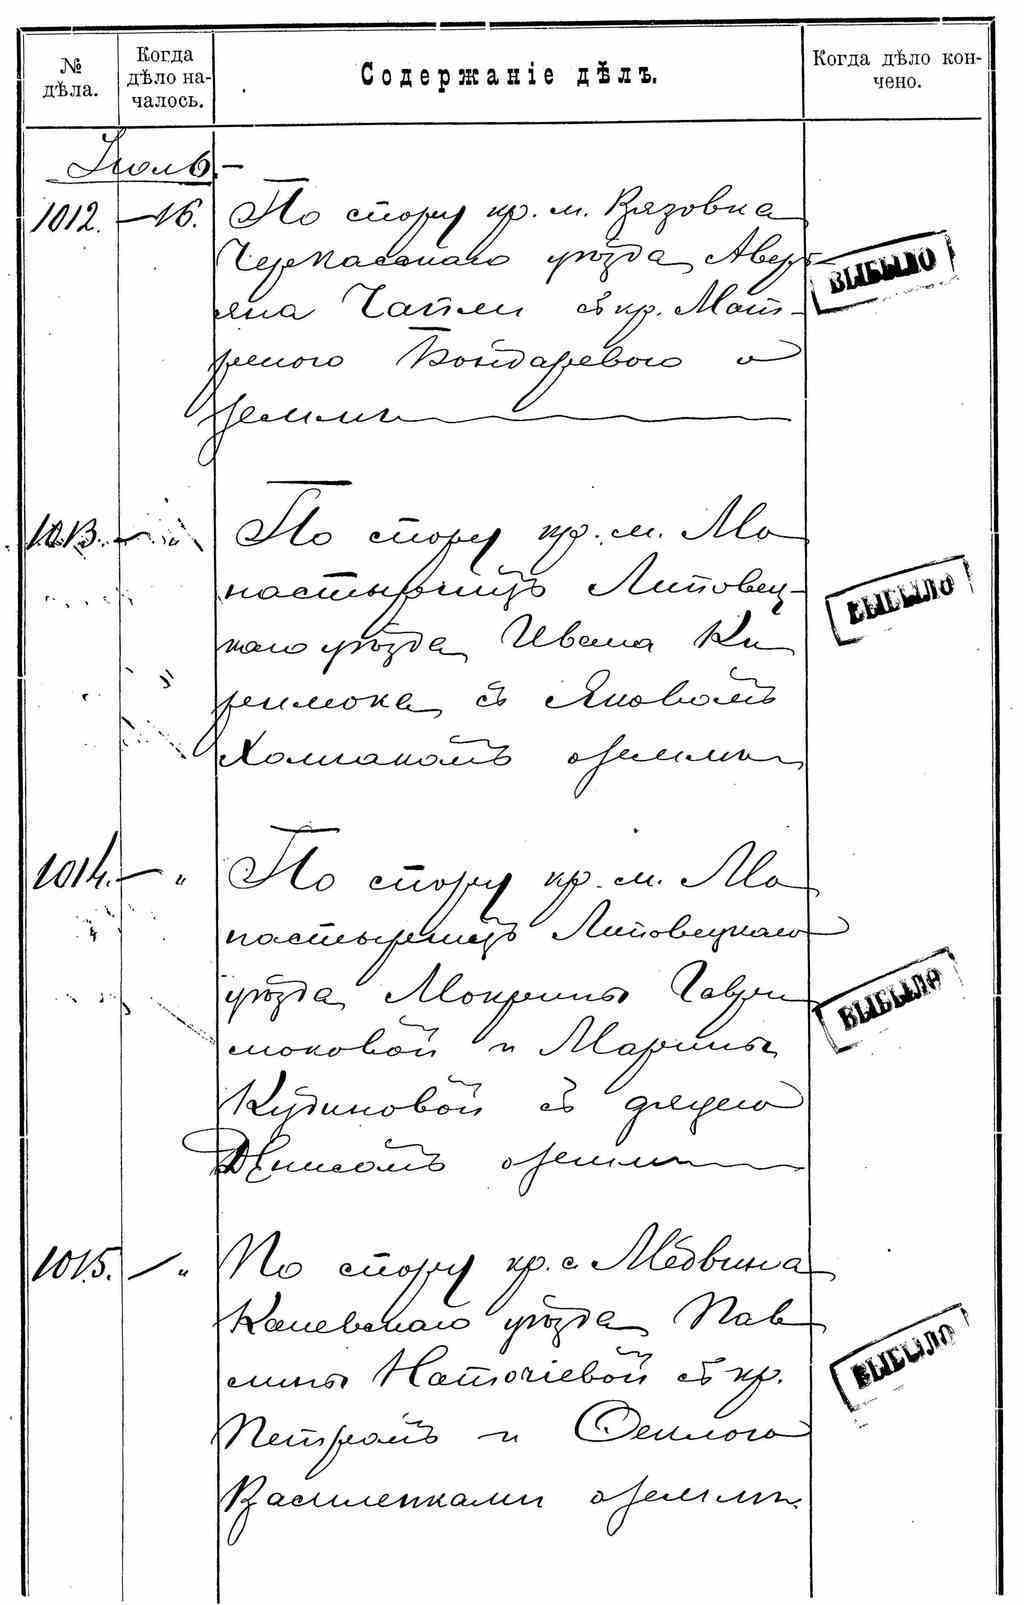 № дѣла.
Когда дѣло на-
чалось.
Содержаніе дѣлъ.
Когда дѣло кон-
чено.
Іюль
1012. — 16. По спору кр. м. Вязовка
Черкасскаго уѣзда Авер-
яна Чапли съ кр. Мат-
реною Бондаревою о
землѣ
ВЫБЫЛО
1013. — „ По спору кр. м. Мо
настырищъ Липовец-
каго уѣзда Ивана Ки
рилюка съ Яковомъ
Колпакомъ о землѣ
ВЫБЫЛО
1014. — „ По спору кр. м. Мо
настырищъ Липовецкаго
уѣзда Мокрины Гаври
люковой и Марины
съ дядею
Денисомъ о землѣ
ВЫБЫЛО
1015. — „ По спору кр. с. Медвина
Каневскаго уѣзда Пав
лины съ кр.
Петромъ и Феклою
Василенками о землѣ.
ВЫБЫЛО